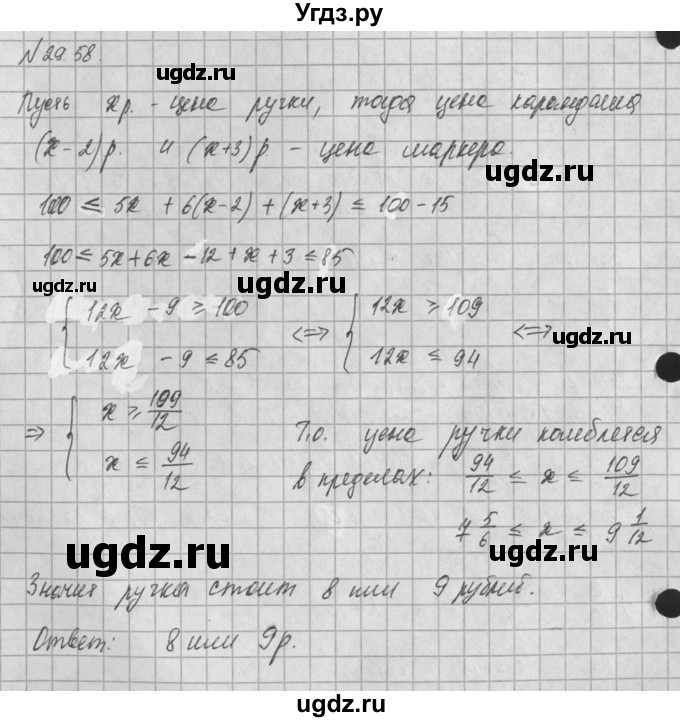 Угдз.ру
N 29.58.
ugdz.ru
ugdz.ru
Пусть xр. - цена ручки, тогда цена карандаша
(x-2)р. и (x+3)р - цена маркера.
ugdz.ru
100 ≤ 5x + 6(x-2) + (x+3) ≤ 100-15
100 ≤ 5x+6x-12+x+3 ≤ 85
ugdz.ru
ugdz.ru
{ 12x - 9 ≥ 100 <=> { 12x ≥ 109 <=>
ugdz.ru
12x - 9 ≤ 85 12x ≤ 94
=> { x ≥ 109/12
x ≤ 94/12
Т.о. цена ручки колеблется
в пределах: 94/12 ≤ x ≤ 109/12
ugdz.ru
7 5/6 ≤ x ≤ 9 1/12
ugdz.ru
ugdz.ru
Значит ручка стоит 8 или 9 рублей.
Ответ: 8 или 9р.
ugdz.ru
ugdz.ru